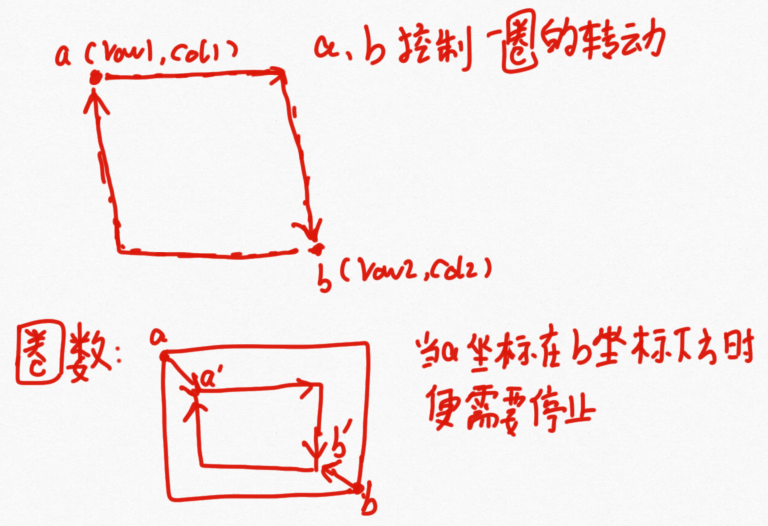 a (row1, col1)
a、b 控制一圈的转动
b (row2, col2)
圈数:
a
a'
b'
b
当a坐标在b坐标下方时
便需要停止